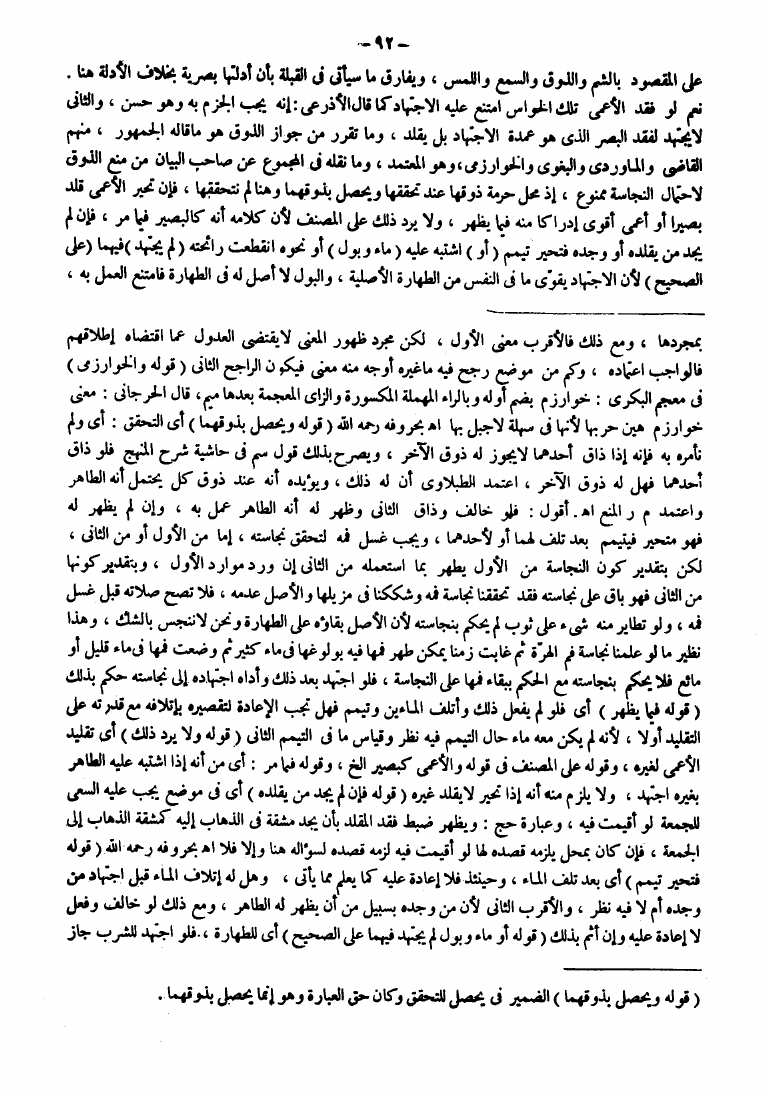 - ٩٢ -
على المقصود بالشم والذوق والسمع واللمس ، ويفارق ما سيأتى فى القبلة بأن أدلتها بصرية بخلاف الأدلة هنا .
نعم لو فقد الأعمى تلك الحواس امتنع عليه الاجتهاد كما قال الأذرعى : إنه يجب الجزم به وهو حسن ، والثانى
لايجتهد لفقد البصر الذى هو عمدة الاجتهاد بل يقلد ، وما تقرر من جواز الذوق هو ماقاله الجمهور ، منهم
القاضى والماوردى والبغوى والخوارزمى، وهو المعتمد ، وما نقله فى المجموع عن صاحب البيان من منع الذوق
لاحتمال النجاسة ممنوع ، إذ محل حرمة ذوقها عند تحققها ويحصل بذوقهما وهنا لم نتحققها ، فإن تحير الأعمى قلد
بصيرا أو أعمى أقوى إدراكا منه فيما يظهر ، ولا يرد ذلك على المصنف لأن كلامه أنه كالبصير فيما مر ، فإن لم
يجد من يقلده أو وجده فتحير تيمم ( أو ) اشتبه عليه ( ماء وبول ) أو نحوه انقطعت رائحته ( لم يجتهد ) فيهما ( على
الصحيح ) لأن الاجتهاد يقوى ما فى النفس من الطهارة الأصلية ، والبول لا أصل له فى الطهارة فامتنع العمل به ،
بمجردها ، ومع ذلك فالأقرب معنى الأول ، لكن مجرد ظهور المعنى لايقتضى العدول عما اقتضاه إطلاقهم
فالواجب اعتماده ، وكم من موضع رجح فيه ماغيره أوجه منه معنى فيكون الراجح الثانى ( قوله والخوارزمى )
فى معجم البكرى : خوارزم بضم أوله وبالراء المهملة المكسورة والزاى المعجمة بعدها ميم، قال الجرجانى : معنى
خوارزم هين حربها لأنها فى سهلة لاجبل بها اه بحروفه رحمه الله ( قوله ويحصل بذوقهما ) أى التحقق : أى ولم
نأمره به فإنه إذا ذاق أحدهما لايجوز له ذوق الآخر ، ويصرح بذلك قول سم فى حاشية شرح المنهج فلو ذاق
أحدهما فهل له ذوق الآخر ، اعتمد الطبلاوى أن له ذلك ، ويؤيده أنه عند ذوق كل يحتمل أنه الطاهر
واعتمد م ر المنع اهـ . أقول : فلو خالف وذاق الثانى وظهر له أنه الطاهر عمل به ، وإن لم يظهر له
فهو متحير فيتيمم بعد تلف لهما أو لأحدهما ، ويجب غسل فمه لتحقق نجاسته ، إما من الأول أو من الثانى ،
لكن بتقدير كون النجاسة من الأول يطهر بما استعمله من الثانى إن ورد موارد الأول ، وبتقدير كونها
من الثانى فهو باق على نجاسته فقد تحققنا نجاسة فمه وشككنا فى مزيلها والأصل عدمه ، فلا تصح صلاته قبل غسل
فمه ، ولو تطاير منه شىء على ثوب لم يحكم بنجاسته لأن الأصل بقاؤه على الطهارة ونحن لاننجس بالشك ، وهذا
نظير ما لو علمنا نجاسة فم الهرّة ثم غابت زمنا يمكن طهر فمها فيه بولوغها فى ماء كثير ثم وضعت فمها فى ماء قليل أو
مائع فلا يحكم بنجاسته مع الحكم ببقاء فمها على النجاسة ، فلو اجتهد بعد ذلك وأداه اجتهاده إلى نجاسته حكم بذلك
( قوله فيما يظهر ) أى فلو لم يفعل ذلك وأتلف الماءين وتيمم فهل تجب الإعادة لتقصيره بإتلافه مع قدرته على
التقليد أولا ، لأنه لم يكن معه ماء حال التيمم فيه نظر وقياس ما فى التيمم الثانى ( قوله ولا يرد ذلك ) أى تقليد
الأعمى لغيره ، وقوله على المصنف فى قوله والأعمى كبصير الخ ، وقوله فيما مر : أى من أنه إذا اشتبه عليه الطاهر
بغيره اجتهد ، ولا يلزم منه أنه إذا تحير لايقلد غيره ( قوله فإن لم يجد من يقلده ) أى فى موضع يجب عليه السعى
للجمعة لو أقيمت فيه ، وعبارة حج : ويظهر ضبط فقد المقلد بأن يجد مشقة فى الذهاب إليه كمشقة الذهاب إلى
الجمعة ، فإن كان بمحل يلزمه قصده لها لو أقيمت فيه لزمه قصده لسؤاله هنا وإلا فلا اه بحروفه رحمه الله ( قوله
فتحير تيمم ) أى بعد تلف الماء ، وحينئذ فلا إعادة عليه كما يعلم مما يأتى ، وهل له إتلاف الماء قبل اجتهاد من
وجده أم لا فيه نظر ، والأقرب الثانى لأن من وجده بسبيل من أن يظهر له الطاهر ، ومع ذلك لو خالف وفعل
لا إعادة عليه وإن أثم بذلك ( قوله أو ماء وبول لم يجتهد فيهما على الصحيح ) أى للطهارة ، فلو اجتهد للشرب جاز
( قوله ويحصل بذوقهما ) الضمير فى يحصل للتحقق وكان حق العبارة وهو إنما يحصل بذوقهما .